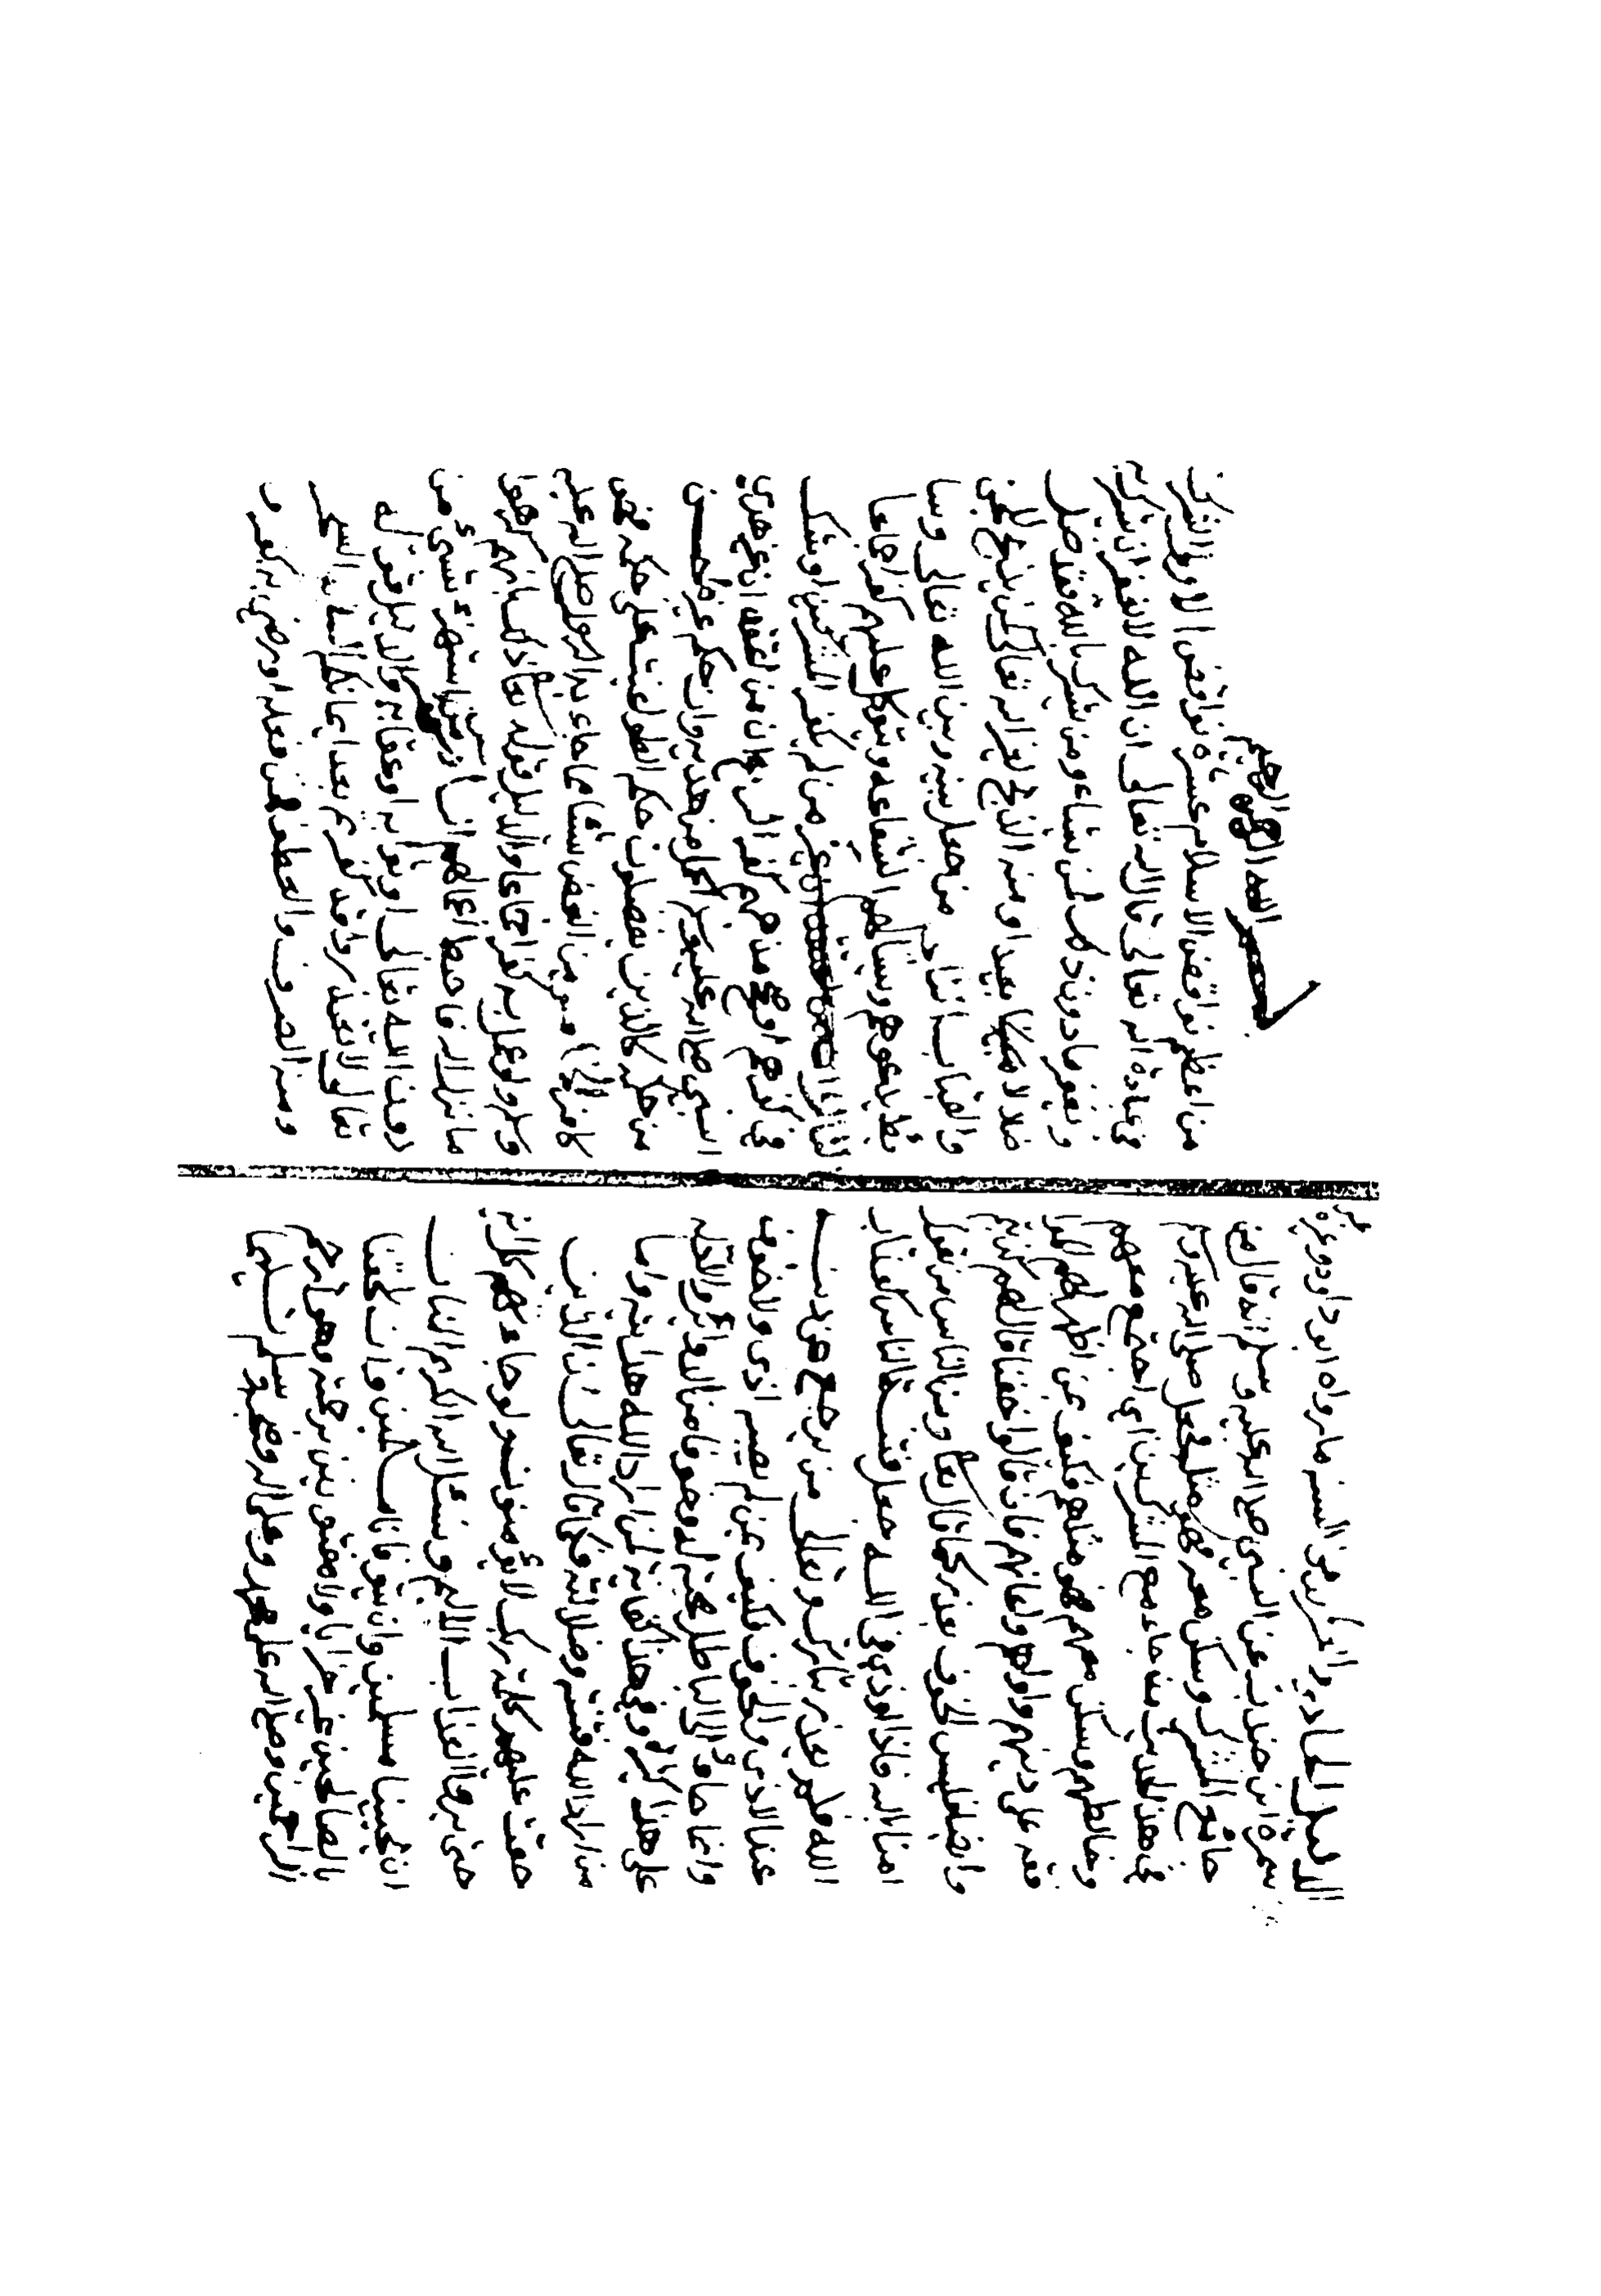 الدليل الحادي والعشرون من السنه ما رواه ابو داود وغيره عن
سمرة ابن جندب عن النبي صلى الله عليه وسلم انه قال من
جامع المشرك وسكن معه فهو مثله فجعل صلى الله عليه وسلم
في هذا الحديث من جامع المشركين اي اجتمع معهم
وخالطهم وسكن معهم فهو مثلهم فكيف بمن اظهر لهم الموا
فقه على دينهم واواهم واعانهم فان قالوا خفنا قالهم كذبتم
وايضا فليس الخوف بعذر كما قال تعا ومن الناس من يقول
امنا بالله فاذا اوذي في الله جعل فتنة الناس كعذاب
الله فلم يعذر تبارك وتعالى من يرجع عن دينه
عند الاذى والخوف فكيف بمن لم يصبه اذى ولا خوف
وانما جاؤا الى الباطل محبة له وخوفا من الدوائر والادله
على هذا كثيرة وفي هذا كفاية لمن اراد الله هدايته واما
من اراد الله فتنته وضلالته فكما قال تعالى ان الذين
حقت عليهم كلمة ربك لا يؤمنون ولو جاءتهم كل اية
حتى يروا العذاب الاليم ونسئل الله الكريم المنان
ان يحيينا مسلمين وان يتوفانا مسلمين وان يلحقنا
بالصالحين غير خزايا ولا مفتونين برحمته وهو ارحم
الراحمين وصلى الله على محمد وعلى اله وصحبه وسلم تسليما
بسم الله الرحمن الرحيم
من اعظم نواقض الاسلام عشرة نواقض الاول الشرك
في عبادة الله تعالى قال الله تعالى ان الله لا يغفر ان يشرك به
ويغفر ما دون ذلك لمن يشاء ومن يشرك بالله فقد ضل
ضلالا بعيدا ومنه الذبح لغير الله تعالى كمن يذبح للجن
والقباب الثاني من جعل بينه وبين الله تعالى وسا
يط يدعوهم ويسألهم الشفاعه ويتوكل عليهم كفر اجماعا
الثالث من لم يكفر المشركين او شك
في كفرهم او صحح مذهبهم كفر الرابع ان من اعتقد ان غير هدي
النبي صلى الله عليه وسلم اكمل من هديه وان حكم غيره احسن
من حكمه كالذين يفضلون حكم الطواغيت على حكمه فهو
كافر الخامس من ابغض شيئا مما جاء به الرسول صلى الله عليه
وسلم ولو عمل به كفر اجماعا والدليل قوله تعا ذلك بانهم كرهوا
ما انزل الله فاحبط اعمالهم السادس من استهزء بشيء من
دين الله تعالى او ثوابه او عقابه والدليل قوله
تعالى لا تعتذروا قد كفرتم بعد ايمانكم السابع السحر
ومنه الصرف والعطف فمن فعله او رضي به كفر و